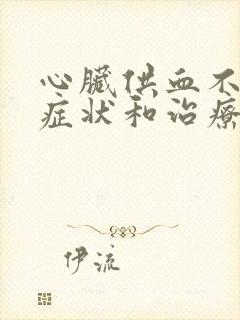 心臟供血不
症状和治療
伊流